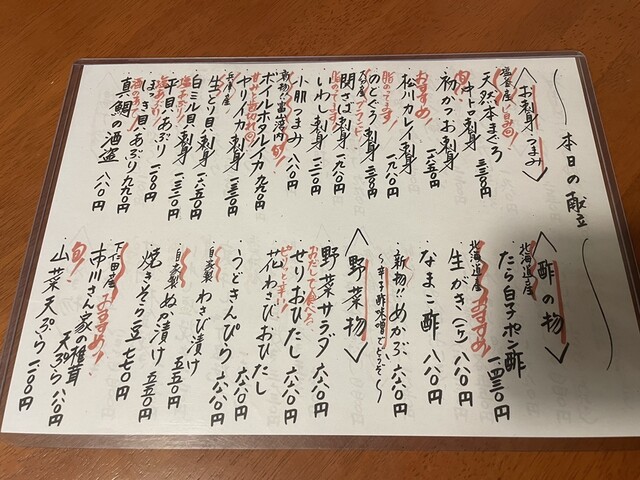 本日の献立
＜お刺身・つまみ＞
塩釜産
天然本まぐろ
中トロ刺身 三、三〇〇円
旬！
初かつお刺身 一、六五〇円
おすすめ
松川カレイ刺身 一、九八〇円
脂のってます
のどぐろ刺身
ブランド
関さば刺身 一、九八〇円
脂のってます
いわし刺身 一、一〇〇円
小肌つまみ 八八〇円
新物!!富山湾内 旬！
ボイルホタルイカ 九九〇円
ヤリイカ刺身 一、三二〇円
兵庫産
生とり貝刺身 一、六五〇円
白ミル貝刺身
平貝あぶり 一、一〇〇円
ほっき貝あぶり 九九〇円
酒のあて！
真鯛の酒盗 八八〇円
＜酢の物＞
北海道産
たら白子ポン酢 一、四三〇円
北海道産 おすすめ
生がき(一ヶ) 八八〇円
なまこ酢 八八〇円
新物!!めかぶ 六六〇円
〜辛子酢味噌でどうぞ〜
＜野菜物＞
野菜サラダ 六六〇円
おだしで食べる
せりおひたし 六六〇円
ピリッと辛い
花わさびおひたし
うどきんぴら 六六〇円
自家製 わさび漬け
自家製 ぬか漬け 五五〇円
焼きそら豆 七七〇円
下仁田産 おすすめ！
市川さん家の椎茸
天ぷら 八八〇円
旬！
山菜天ぷら 一、一〇〇円